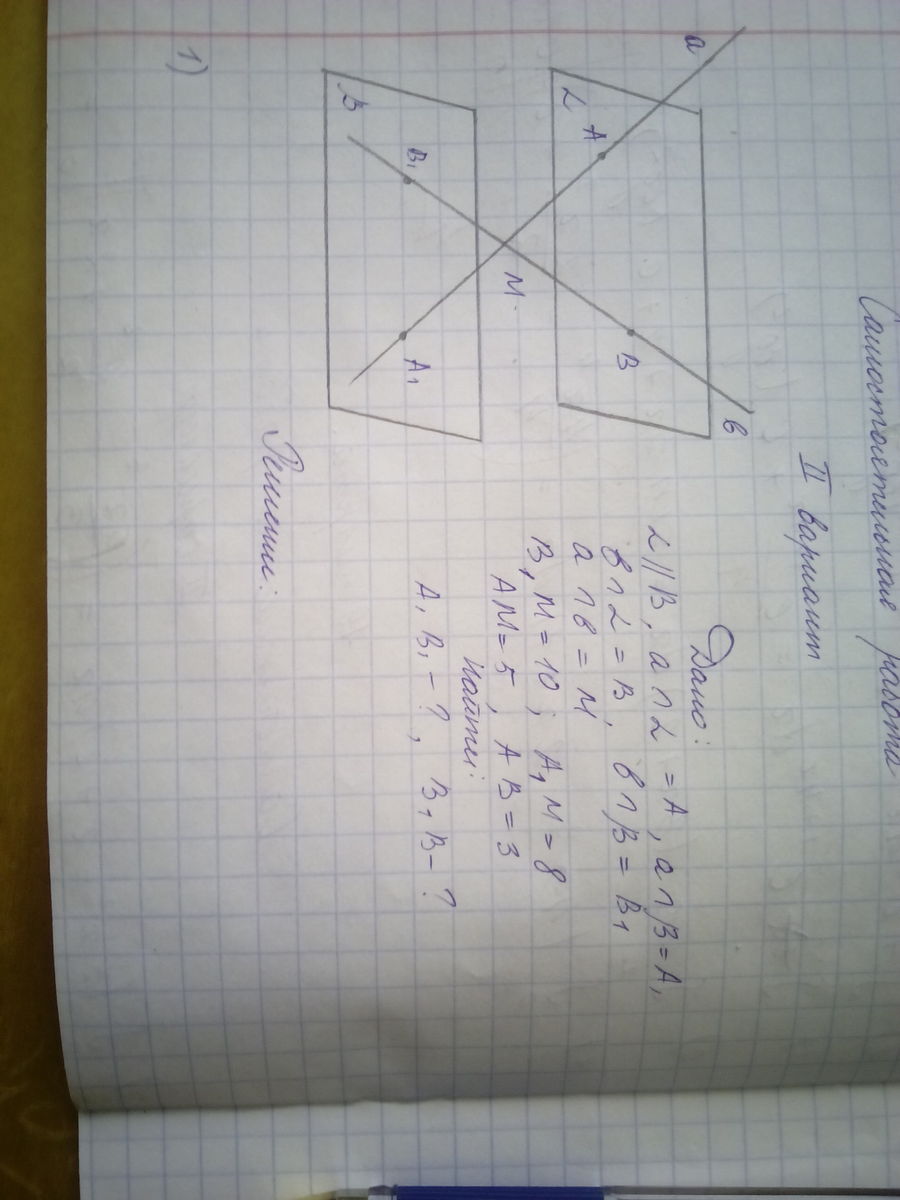 Самостоятельная работа
II вариант
1)
a
α
A
B
в
M
β
B₁
A₁
Дано:
α || β, a ∩ α = A, a ∩ β = A₁
в ∩ α = B, в ∩ β = B₁
a ∩ в = M
B₁M = 10; A₁M = 8
AM = 5, AB = 3
Найти:
A₁B₁ - ?, B₁B - ?
Решение: